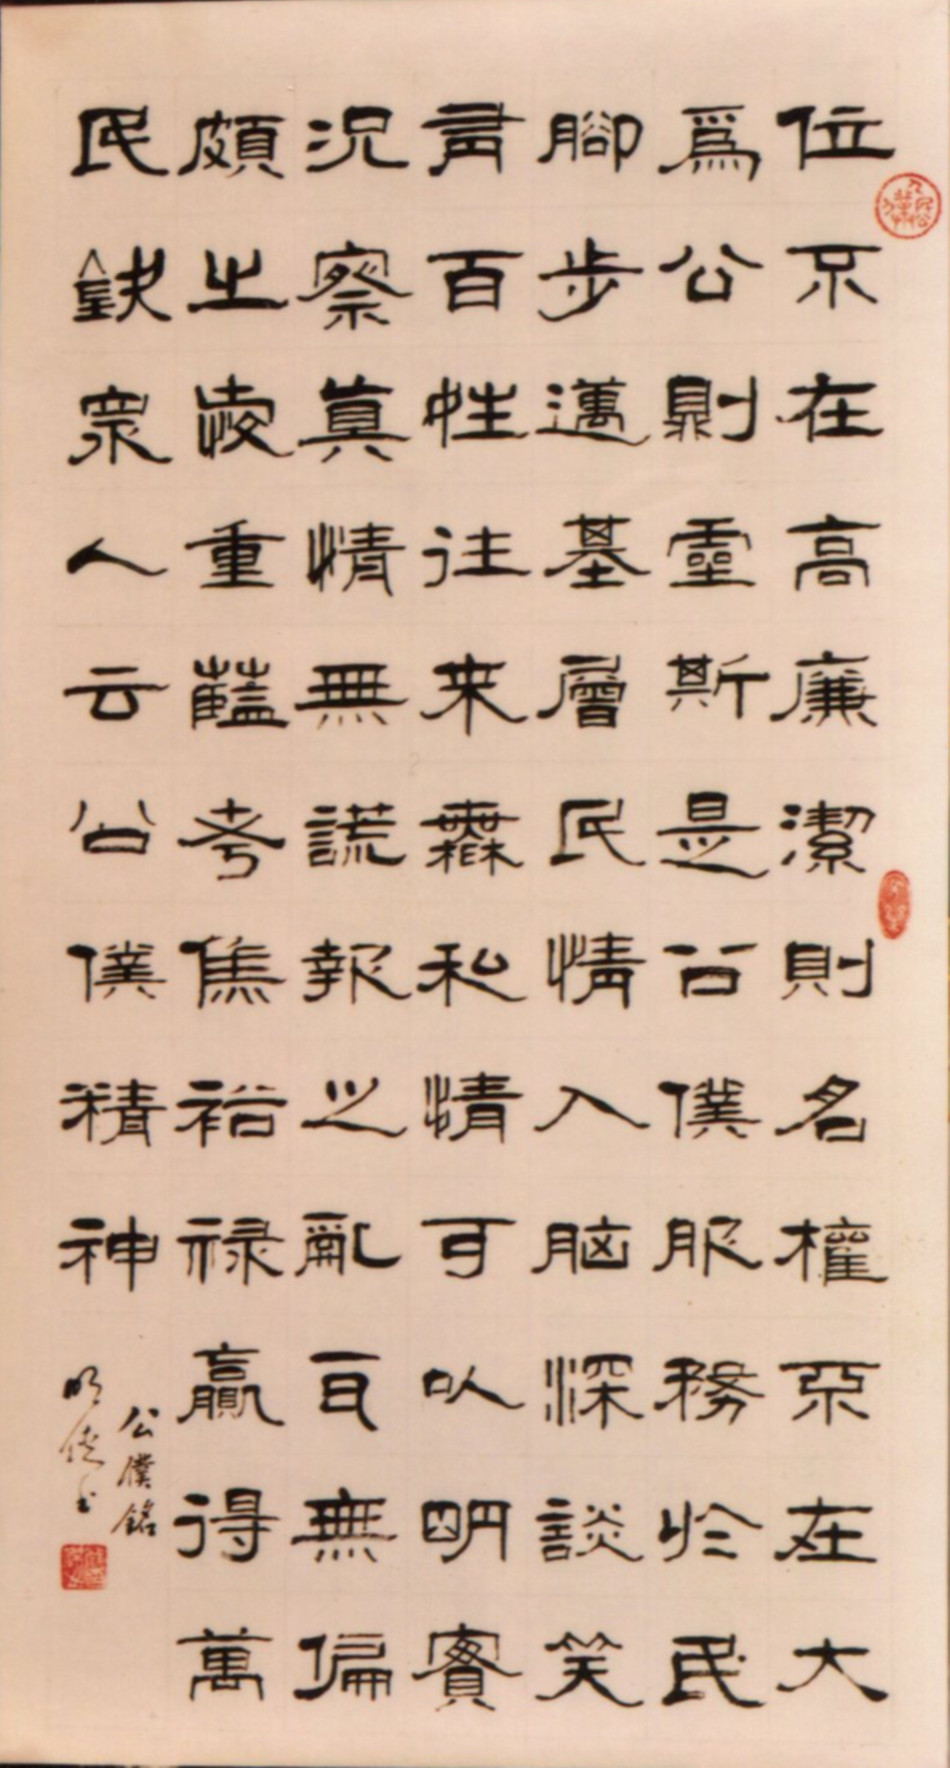 位不在高廉潔則名權不在大
為公則靈斯是公僕服務於民
腳步邁基層民情入腦深談笑
有百姓往來無私情可以明實
況察真情無謊報之亂耳無偏
頗之歧重蘊考焦裕祿贏得萬
民欽眾人云公僕精神
公僕銘
明俊書